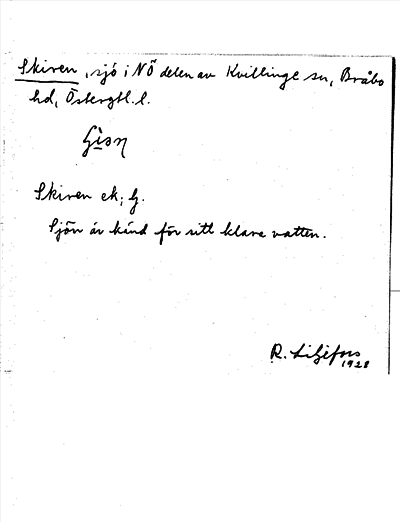 Skiren, sjö i NÖ delen av Kvillinge sn, Bråbo
hd, Östergtl. l.
Skiren ek; G.
Sjön är känd för sitt klara vatten.
R. Liljefors
1928